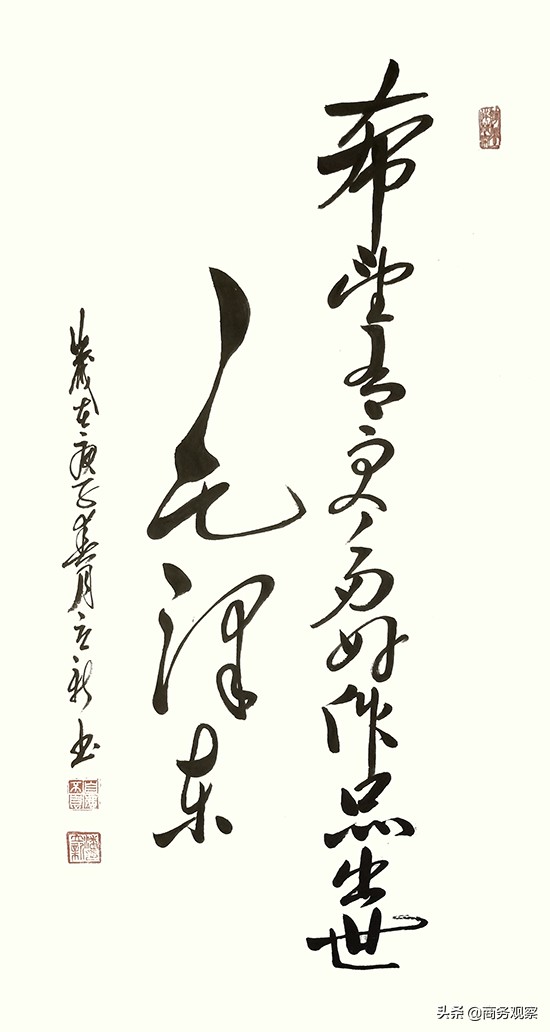 希望有更多好作品出世
毛泽东
岁在庚子春月立新书
头条 @商务观察